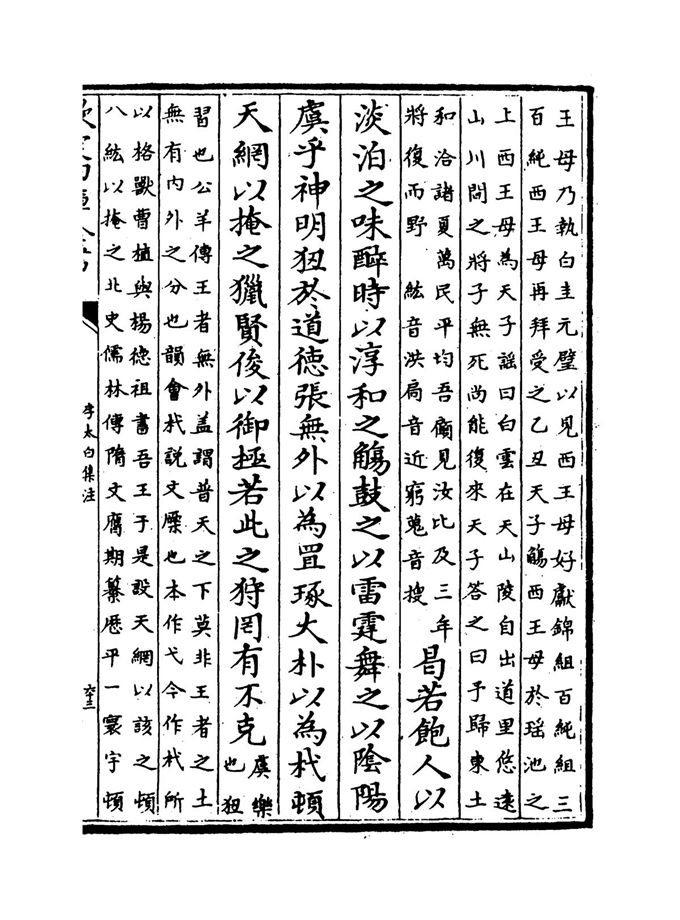 王母乃執白圭元璧以見西王母好獻錦組百純組三
百純西王母再拜受之乙丑天子觴西王母於瑶池之
上西王母為天子謡曰白雲在天山陵自出道里悠逺
山川間之將子無死尚能復來天子答之曰予歸東土
和洽諸夏萬民平均吾顧見汝比及三年
將復而野　紘音洪扃音近窮蒐音搜
曷若飽人以
淡泊之味醉時以淳和之觴鼓之以雷霆舞之以隂陽
虞乎神明狃於道德張無外以為罝琢大朴以為杙頓
天網以掩之獵賢俊以御極若此之狩罔有不克
虞樂
也狃
習也公羊傳王者無外盖謂普天之下莫非王者之土
無有内外之分也韻會杙説文橜也本作弋今作杙所
以格獸曹植與楊德祖書吾王于是設天網以該之頓
八紘以掩之北史儒林傳隋文膺期纂厯平一寰宇頓
李太白集注
六十三